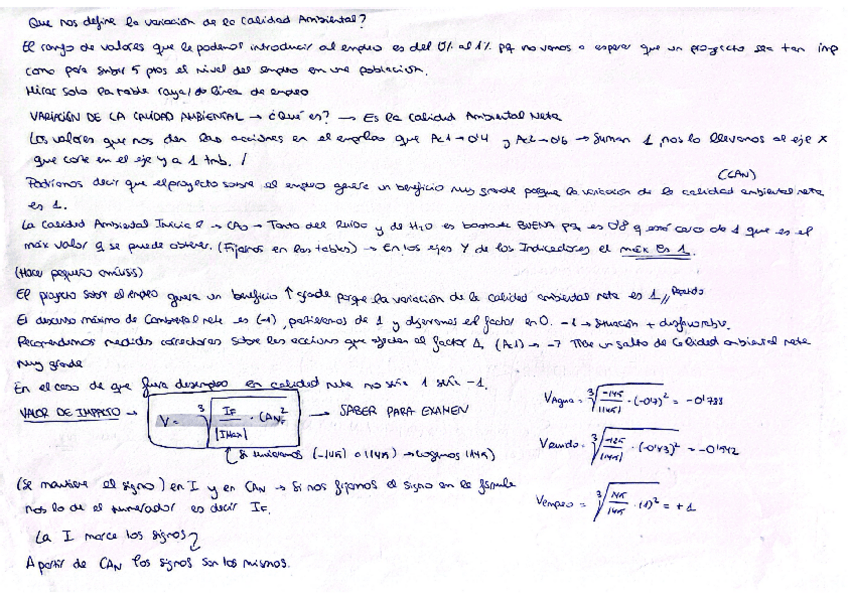 Que nos define la variación de la Calidad Ambiental?
El rango de valores que le podemos introducir al empleo es del 0% al 1% pq no vamos a esperar que un proyecto sea tan imp
como para subir 5 ptos el nivel del empleo en una población.
Mirar solo la tabla línea de empleo
VARIACIÓN DE LA CALIDAD AMBIENTAL → ¿Qué es? → Es la Calidad Ambiental Neta
Los valores que nos dan las acciones en el empleo que Ac1→0'4 y Ac2→0'6 → Suman 1, nos lo llevamos al eje x
que corte en el eje y a 1 tmb. /
(CAN)
Podríamos decir que el proyecto sobre el empleo genera un beneficio muy grande porque la variación de la calidad ambiental neta
es 1.
La Calidad Ambiental Inicial → CAo → Tanto del Ruido y de H2O es bastante BUENA pq es 0'8 y está cerca de 1 que es el
máx valor q se puede obtener. (Fijarnos en las tablas) → En los ejes Y de los Indicadores el máx Es 1.
(Hacer pequeño análisis)
El proyecto sobre el empleo genera un beneficio ↑ grande porque la variación de la calidad ambiental neta es 1 //
El descenso máximo de ambiental neta es (-1), partíamos de 1 y dejaremos el factor en 0. -1 → Situación + desfavorable.
Recomendamos medidas correctoras sobre las acciones que afecten al factor (Ac1) → Tiene un salto de Calidad ambiental neta
muy grande
En el caso de que fuera desempleo en calidad neta no sería 1 sería -1.
VALOR DE IMPACTO → V = ∛ IF / |IMax| · (CAN F)² → SABER PARA EXAMEN
(-145) o |145| → Cogemos |145|
(Se mantiene el signo) en I y en CAN → Si nos fijamos el signo en la fórmula
nos lo da el numerador es decir IF.
La I marca los signos
A partir de CAN los signos son los mismos.
VAgua = ∛ -145 / |145| · (-0'7)² = -0'788
VRuido = ∛ -125 / |145| · (-0'43)² = -0'542
Vempleo = ∛ 145 / 145 · (1)² = +1